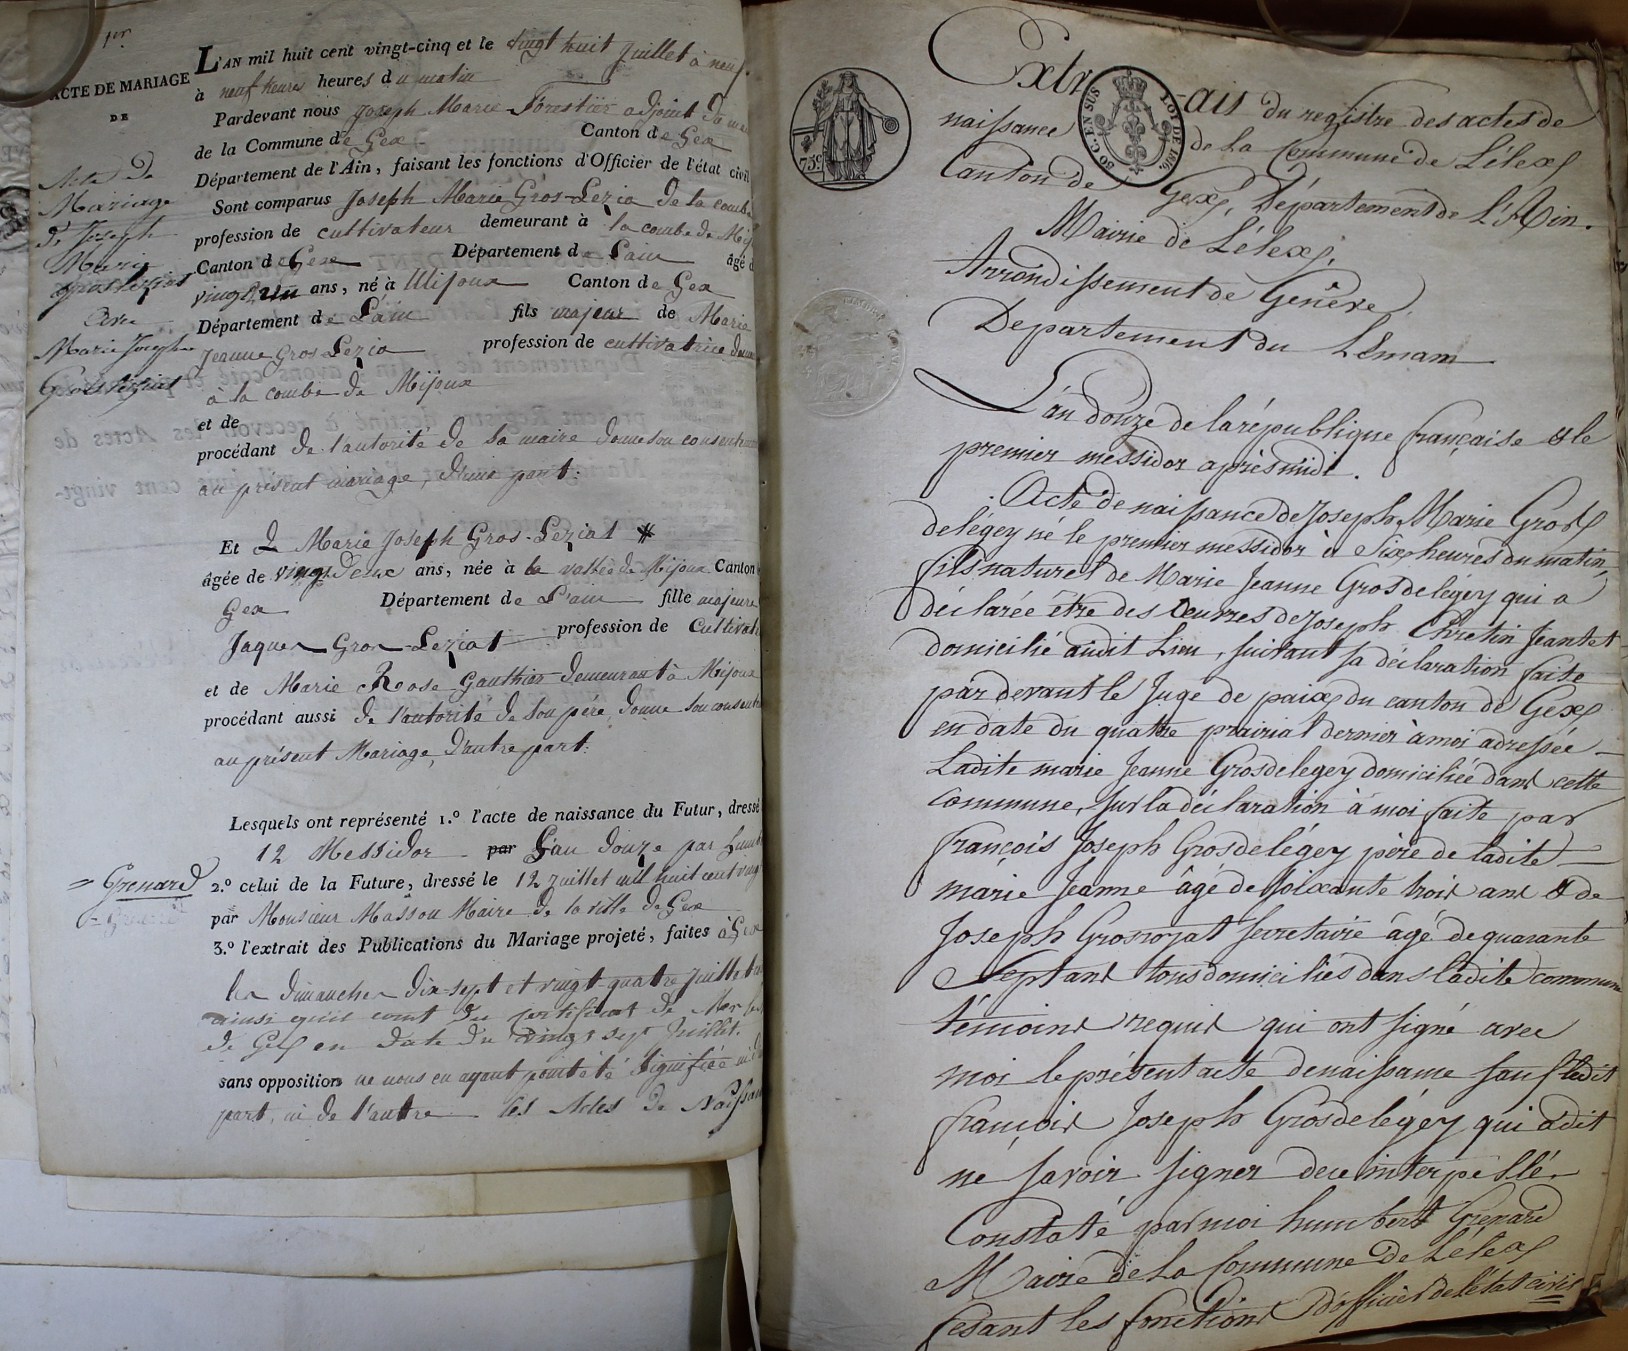 1er
ACTE DE MARIAGE
DE
Acte de
Mariage
de Joseph
Marie
gros leziat
avec
Marie Josephe
Gros leziat
= Grenard
L'AN mil huit cent vingt-cinq et le vingt huit juillet à neuf
à neuf heures heures du matin
Pardevant nous Joseph Marie Forestier adjoint
de la Commune de Gex Canton de Gex
Département de l'Ain, faisant les fonctions d'Officier de l'état civil
Sont comparus Joseph Marie Gros-Lezia de la combe
profession de cultivateur demeurant à la combe de Mij
Canton de Gex Département de L'ain âgé d
vingt un ans, né à Mijoux Canton de Gex
Département de L'ain fils majeur de Marie
Jeanne Gros Lezia profession de cultivatrice
à la combe de Mijoux
et de
procédant de l'autorité de sa maire donne son consentem
au présent mariage, d'une part.
Et de Marie Joseph Gros-Leziat #
âgée de vingt deux ans, née à la vallée de Mijoux Canton
Gex Département de L'ain fille majeure
Jaques Gros-Leziat profession de Cultivat
et de Marie Rose Gauthier demeurant à Mijoux
procédant aussi de l'autorité de son père, donne son consent
au présent Mariage, d'autre part.
Lesquels ont représenté 1.° l'acte de naissance du Futur, dressé
12 Messidor par L'an douze par
2.° celui de la Future, dressé le 12 juillet mil huit cent vingt
par Monsieur Masson Maire de la ville de Gex
3.° l'extrait des Publications du Mariage projeté, faites à Gex
les dimanches dix-sept et vingt-quatre juillet
ainsi qu'il conste du certificat de
de Gex en date du vingt sept Juillet.
sans opposition ne nous en ayant point été signifiée ni d
part, ni de l'autre les Actes de Naissan
75c
30 C. EN SUS
LOI DE 1816.
Extrait du registre des actes de
naissance de la Commune de Lélex
Canton de Gex, Département de L'Ain.
Mairie de Lélex,
Arrondissement de Genève,
Département du Léman
L'an douze de la république française & le
premier messidor après midi.
Acte de naissance de Joseph Marie Gros
delégey né le premier messidor à Six heures du matin,
fils naturel de Marie Jeanne Grosdelégey qui a
déclarée être des Œuvres de Joseph Chretin Jeantet
domicilié audit Lieu, suivant sa déclaration faite
par devant le Juge de paix du canton de Gex
en date du quatre prairial dernier à moi adressée
Ladite marie Jeanne Grosdelegey domiciliée dans cette
commune, sur la déclaration à moi faite par
françois Joseph Grosdelégey père de ladite
marie Jeanne âgé de soixante trois ans & de
Joseph Grosrojat secretaire âgé de quarante
Sept ans tous domiciliés dans ladite commune
témoins requis qui ont signé avec
moi le présent acte de naissance sauf ledit
françois Joseph Grosdelégey qui a dit
ne savoir signer de ce interpellé.
Constaté par moi humbert Grenard
Maire de la Commune de Lélex
fesant les fonctions d'officier de l'état civil